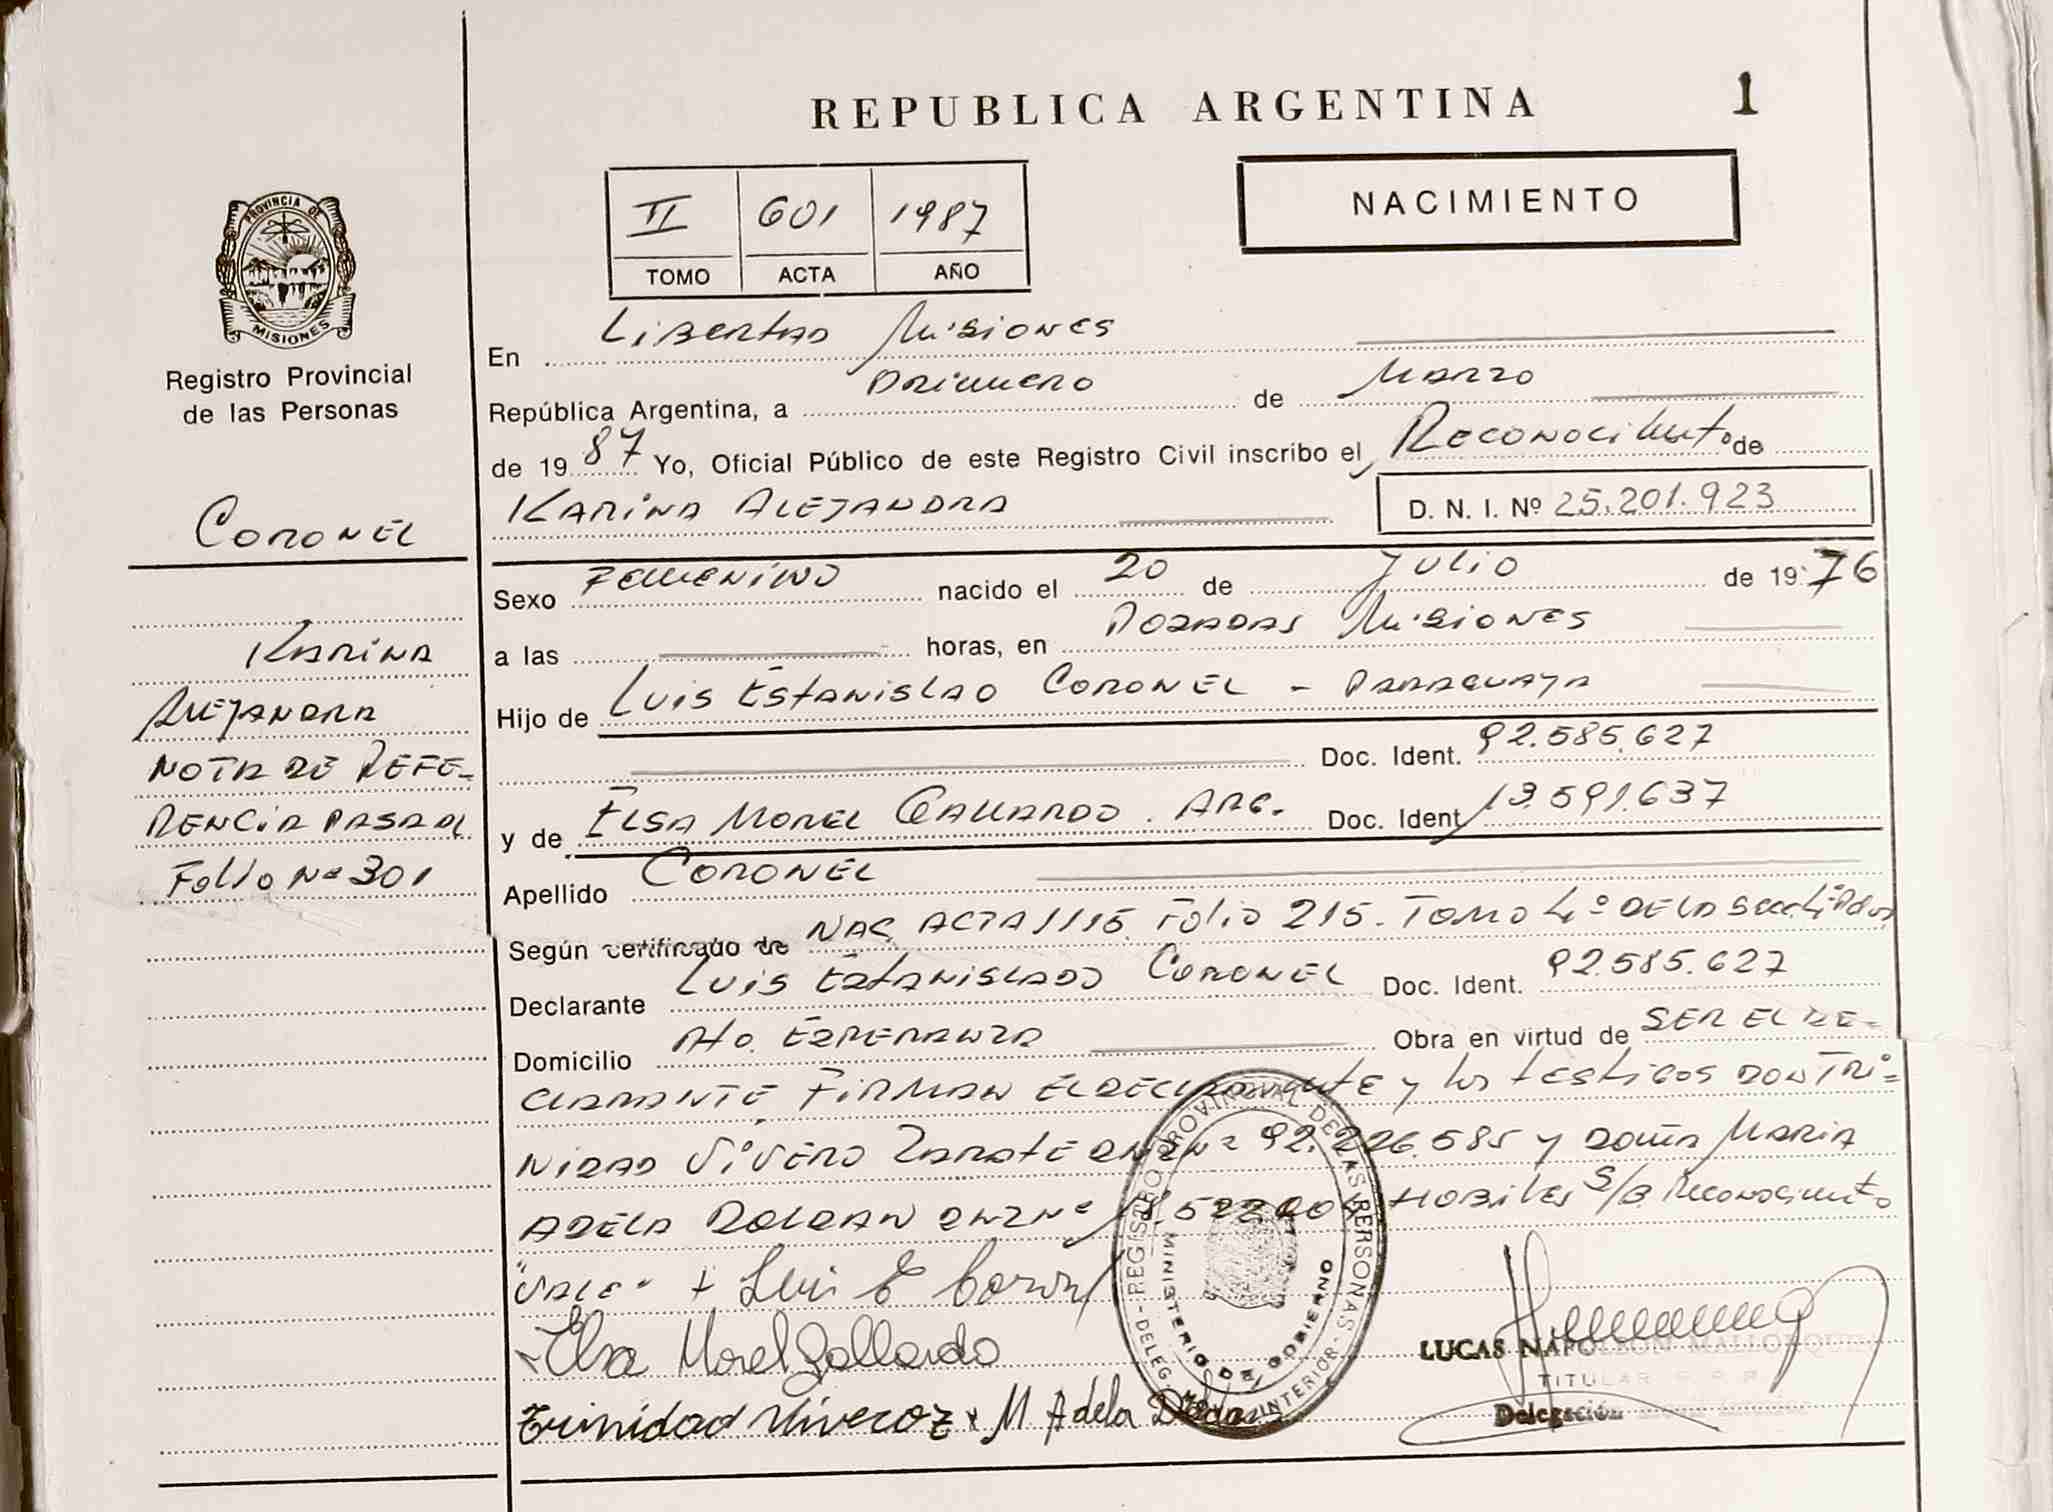 REPUBLICA ARGENTINA
1
II 601 1987
TOMO ACTA AÑO
NACIMIENTO
PROVINCIA DE
MISIONES
Registro Provincial
de las Personas
CORONEL
KARINA
ALEJANDRA
NOTA DE REFE-
RENCIA PASA AL
Folio Nº 301
En Libertad Misiones
República Argentina, a primero de Marzo
de 19 87 Yo, Oficial Público de este Registro Civil inscribo el Reconocimiento de
KARINA ALEJANDRA D. N. I. Nº 25.201.923
Sexo Femenino nacido el 20 de Julio de 19 76
a las horas, en Posadas Misiones
Hijo de Luis Estanislao CORONEL - PARAGUAYA
Doc. Ident. 92.585.627
y de Elsa Morel Gallardo. ARG. Doc. Ident 13.591.637
Apellido CORONEL
Según certificado de NAC. ACTA 1115 Folio 215. TOMO 4º DE LA
Declarante Luis Estanislado CORONEL Doc. Ident. 92.585.627
Domicilio Pto. Esperanza Obra en virtud de SER EL DE-
CLARANTE, FIRMAN EL DECLARANTE y los testigos DON TRI=
NIDAD VIVERO ZARATE 92.226.585 y DOÑA MARIA
ADELA ROLDAN HOBILES S/B Reconocimiento
"VALE" + Luis E Coronel
Elsa Morel Gallardo
Trinidad Viveroz x M Adela
REGISTRO PROVINCIAL DE LAS PERSONAS - DELEG. INTERIOR -
MINISTERIO DE GOBIERNO
LUCAS NAPOLEON MALLORQUIN
TITULAR
Delegación